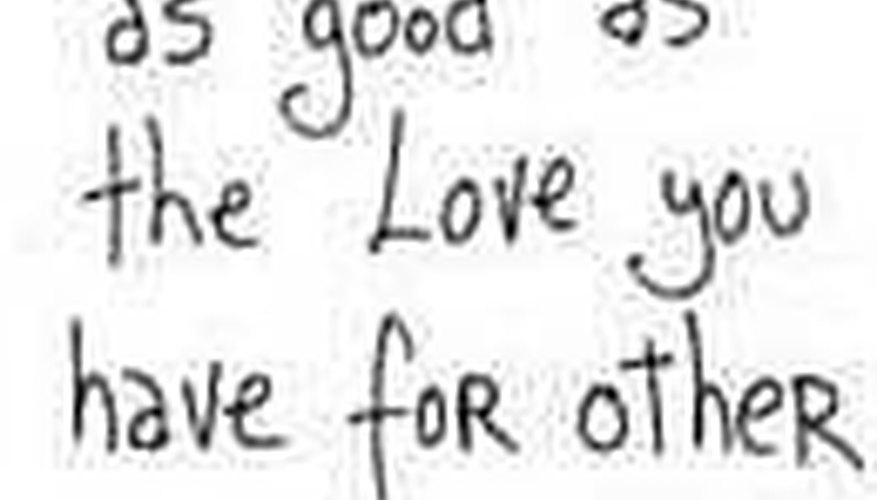 as good as
the Love you
have foR otheR